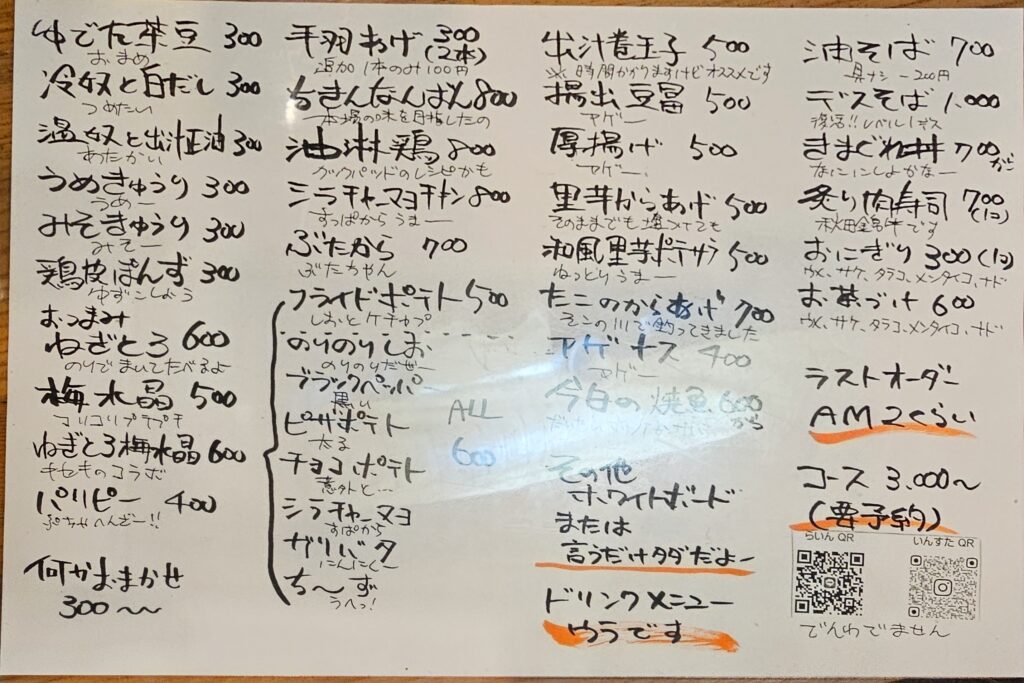 ゆでた茶豆 300
おまめ
冷奴と白だし 300
つめたい
温奴と出汁正油 300
あたかい
うめきゅうり 300
うめー
みそきゅうり 300
みそー
鶏皮ぽんず 300
ゆずこしょう
おつまみ
ねぎとろ 600
のりでまいてたべるよ
梅水晶 500
コリコリプチプチ
ねぎとろ梅水晶 600
キセキのコラボ
パリピー 400
ぷちゃへんざー!!
何かおまかせ
300〜〜
手羽あげ 300
(2本)
追加1本のみ100円
ちきんなんばん 800
本場の味を目指したの
油淋鶏 800
クックパッドのレシピかも
シラチャーマヨチキン 800
すっぱからうまー
ぶたから 700
ぶたかやん
フライドポテト 500
しおとケチャップ
のりのりしお
のりのりだぜー
ブラックペッパ
黒い
ピザポテト
太る
チョコポテト
意外と…
シラチャーマヨ
すぱから
ガリバタ
にんにくー
ち〜ず
うへっ!
ALL
600
出汁巻玉子 500
※時間かかりますけどオススメです
揚出豆冨 500
アゲー
厚揚げ 500
アゲー、
里芋からあげ 500
そのままでも塩つけても
和風里芋ポテサラ 500
ねっとりうまー
たこのからあげ 700
そこの川で釣ってきました
アゲナス 400
アゲー
今日の焼魚 600
から
その他
ホワイトボード
または
言うだけタダだよー
ドリンクメニュー
ウラです
油そば 700
具ナシ -200円
デスそば 1,000
復活!!レベル1デス
きまぐれ丼 700
から
なににしよかなー
炙り肉寿司 700
(1コ)
秋田錦牛です
おにぎり 300(1コ)
ウメ、サケ、タラコ、メンタイコ、ナド
お茶づけ 600
ウメ、サケ、タラコ、メンタイコ、ナド
ラストオーダー
AM2くらい
コース 3,000〜
(要予約)
らいん QR
いんすた QR
でんわでません